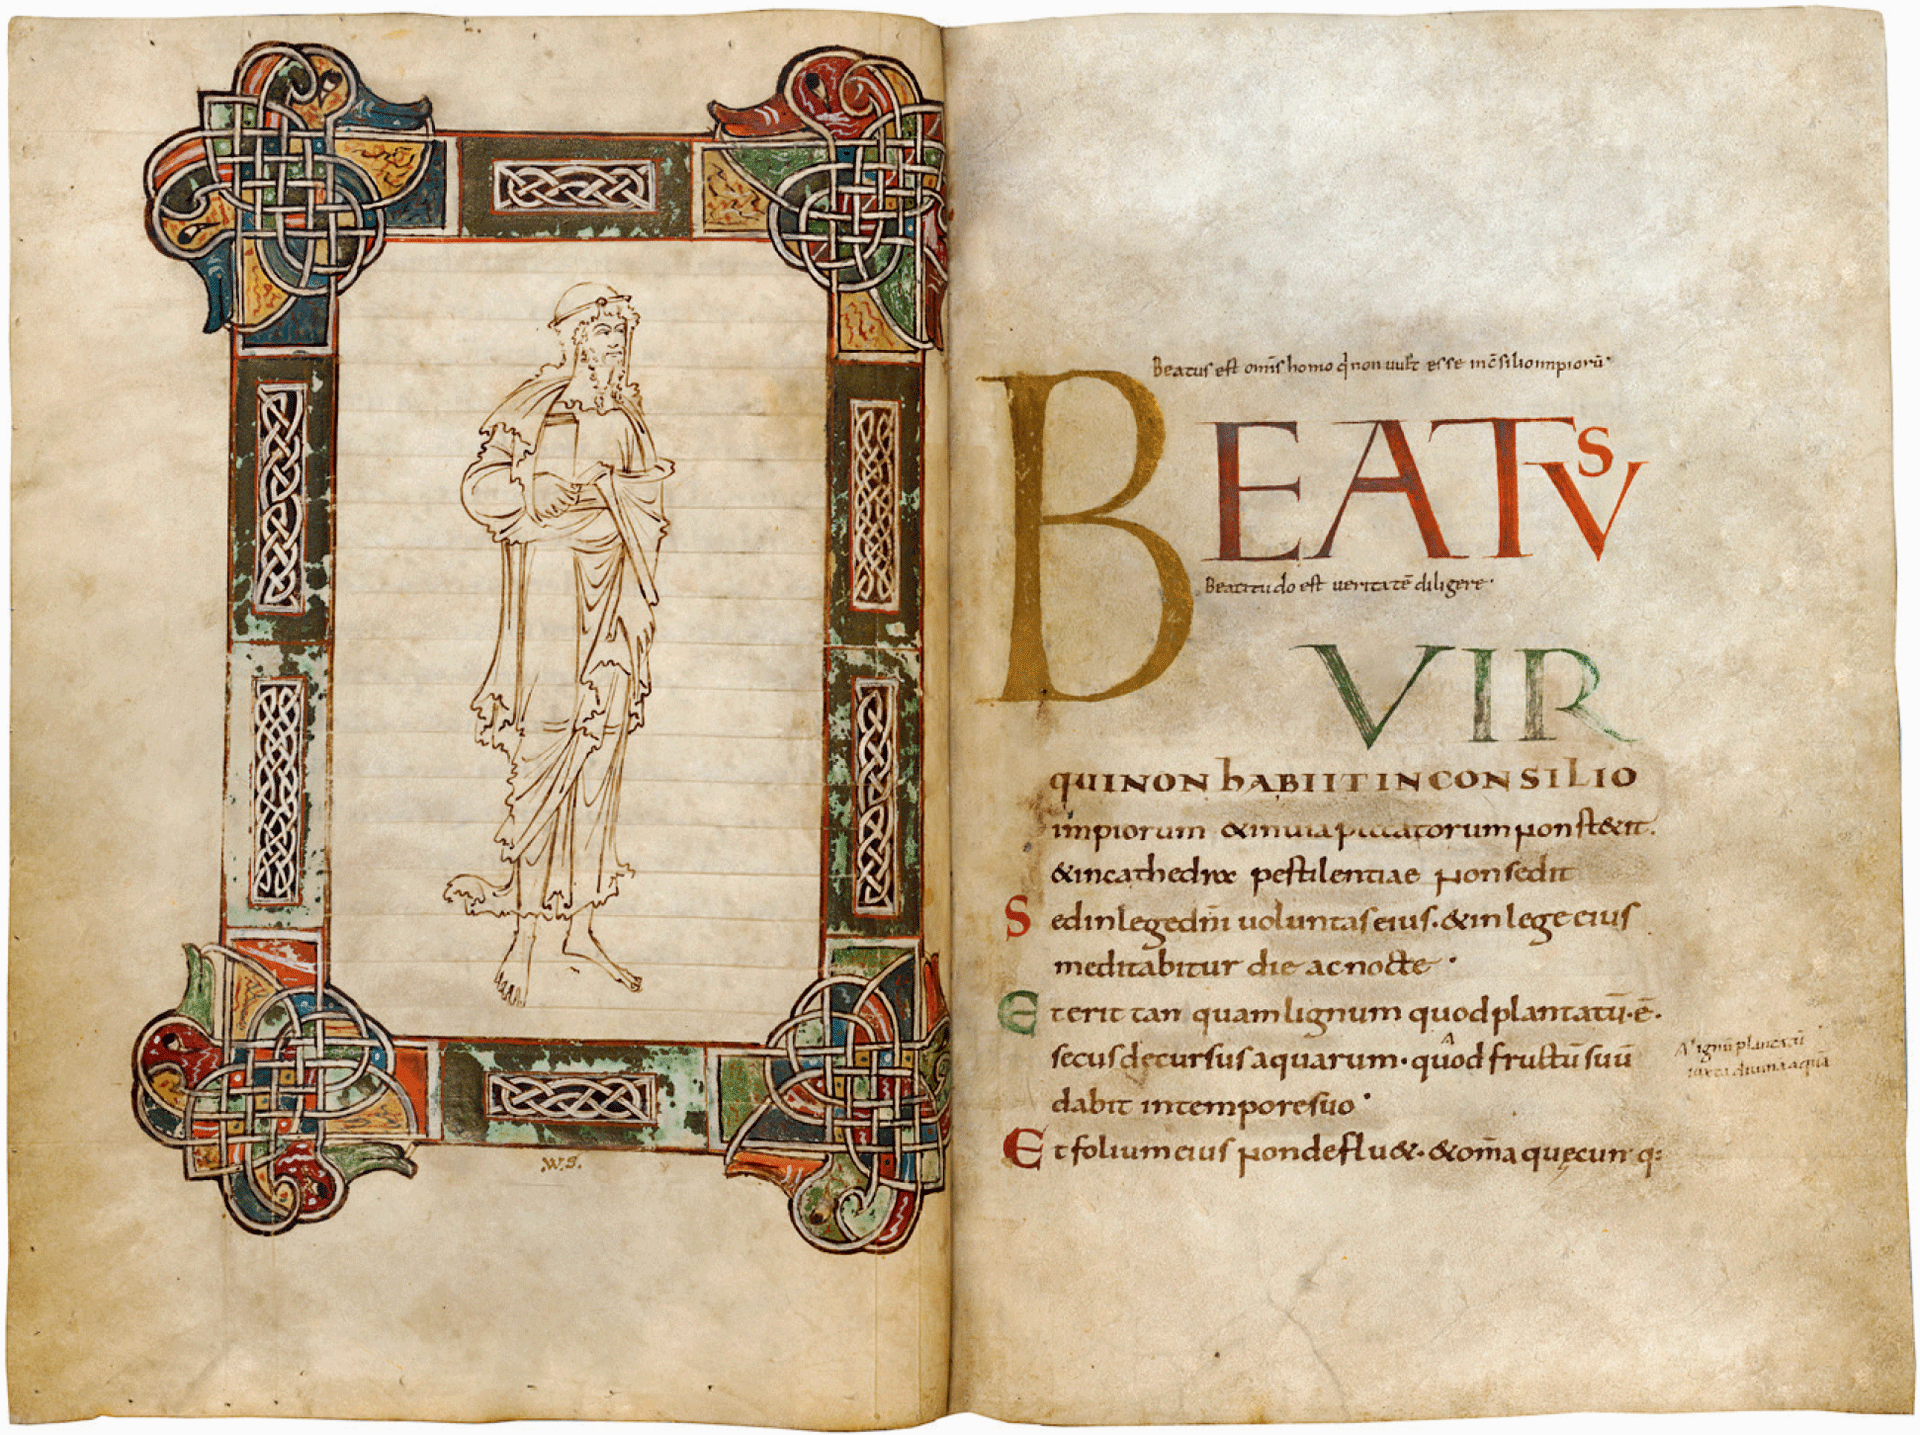 .W.S.
Beatus est om̅s homo q̇ non uult esse in c̅silio impioru̅.
BEATVS
Beatitudo est veritate̅ diligere.
VIR
QUI NON hABIIT IN CONSILIO
impiorum & in uia peccatorum non st&it.
& in cathedra pestilentiae non sedit
Sed in lege dn̅i uoluntas eius. & in lege eius
meditabitur die ac nocte.
Et erit tan quam lignum quod plantatu̅. e̅.
secus decursus aquarum. quod fructu̅ suu̅
A
dabit in tempore suo.
Et folium eius non deflu&. & om̅a quęcunq:
A lignu̅ plantatu̅
iuxta diuina aqua̅